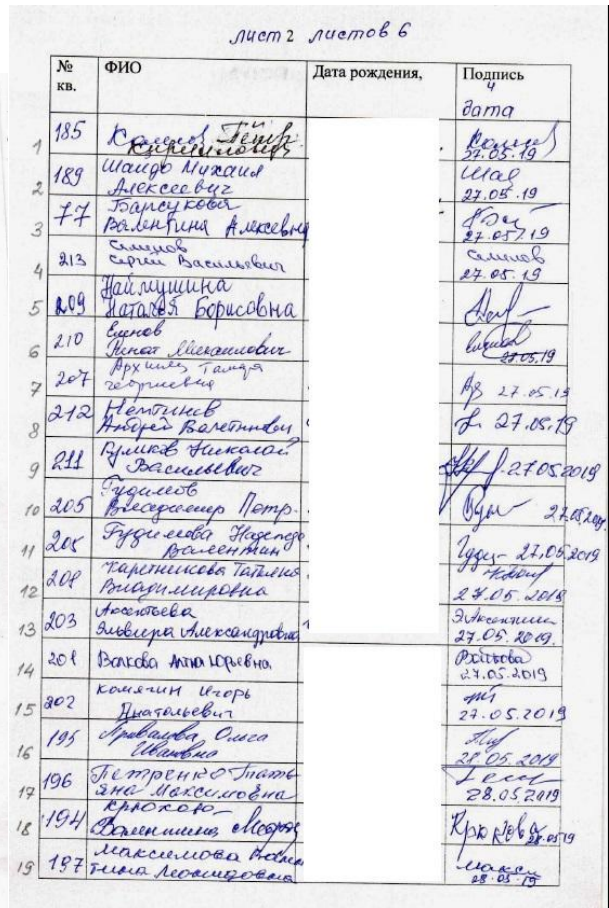 лист 2 листов 6
№ кв. ФИО Дата рождения, Подпись
и
дата
1 185 Петр
Кириллович 27.05.19
2 189 Шайдо Михаил
Алексеевич Шай 27.05.19
3 77 Барсукова
Валентина Алексеевна 27.05.19
4 213 Семенов
Сергей Васильевич Семенов 27.05.19
5 209 Наймушина
Наталья Борисовна
6 210 Еленов
27.05.19
7 207 Тамара
Георгиевна 27.05.19
8 212
Андрей Валентинович 27.05.19
9 211 Николай
Васильевич 27.05.2019
10 205 Гудимов
Владимир Петр. 27.05.2019
11 205 Гудимова Надежда
Валентин 27.05.2019
12 208 Каретникова Татьяна
Владимировна 27.05.2019
13 203 Аксентьева
Эльвира Александровна 27.05.2019.
14 201 Волкова Анна Юрьевна 27.05.2019
15 202 Комягин Игорь
Анатольевич 27.05.2019
16 195 Привалова Ольга
Ивановна 28.05.2019
17 196 Петренко Тать
яна Максимовна 28.05.2019
18 194 Крюкова
Валентина Крюкова 28.05.19
19 197 Максимова Вален
тина Леонидовна Макси 28.05.19